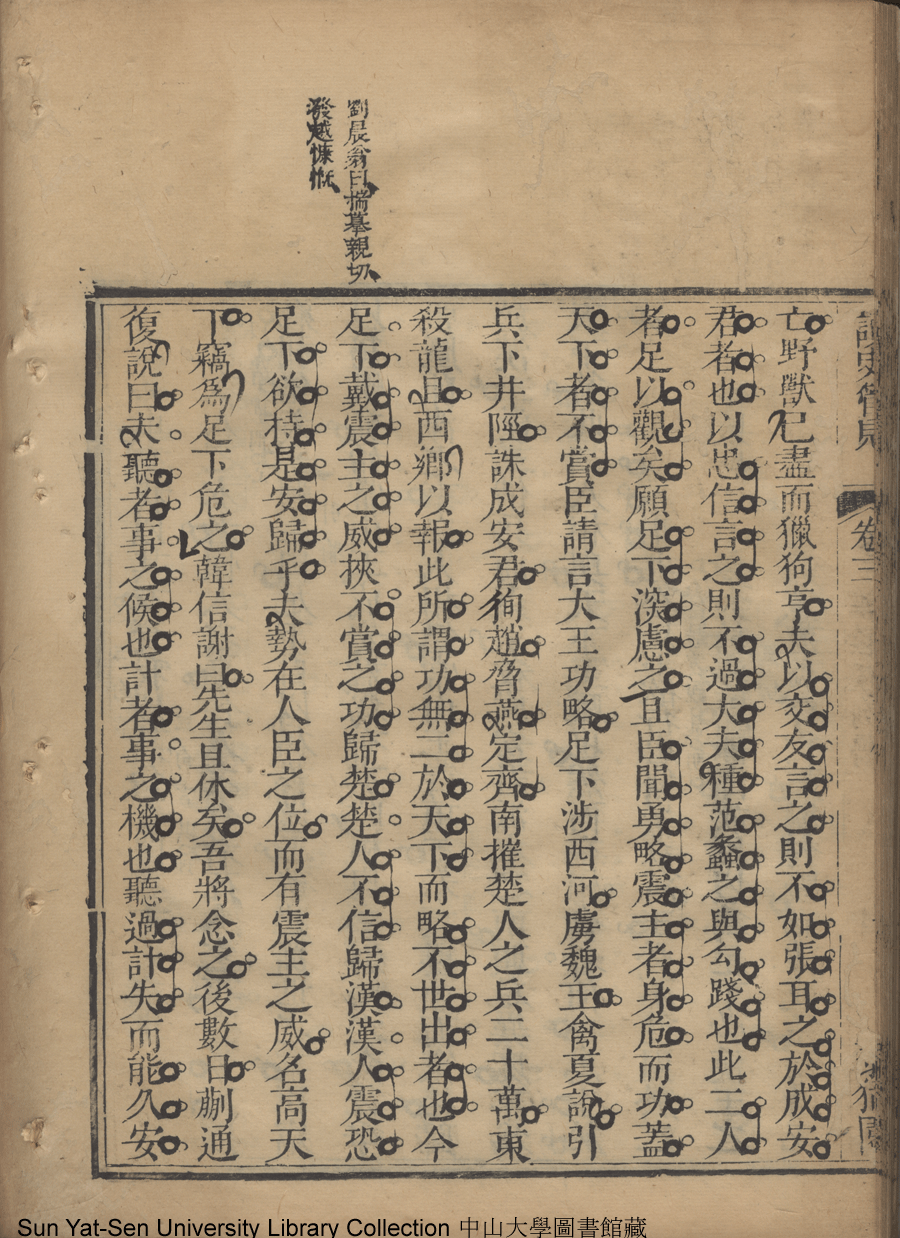 亡野獸已盡而獵狗亨夫以交友言之則不如張耳之於成安
君者也以忠信言之則不過大夫種范蠡之與勾踐也此二人
者足以觀矣願足下深慮之且臣聞勇略震主者身危而功蓋
天下者不賞臣請言大王功略足下涉西河虜魏王禽夏說引
兵下井陘誅成安君徇趙脅燕定齊南摧楚人之兵二十萬東
殺龍且西鄉以報此所謂功無二於天下而略不世出者也今
足下戴震主之威挾不賞之功歸楚楚人不信歸漢漢人震恐
足下欲持是安歸乎夫勢在人臣之位而有震主之威名高天
下竊為足下危之韓信謝曰先生且休矣吾將念之後數日蒯通
復說曰夫聽者事之候也計者事之機也聽過計失而能久安
劉辰翁曰揣摹親切
發越慷慨
卷三
Sun Yat-Sen University Library Collection 中山大學圖書館藏